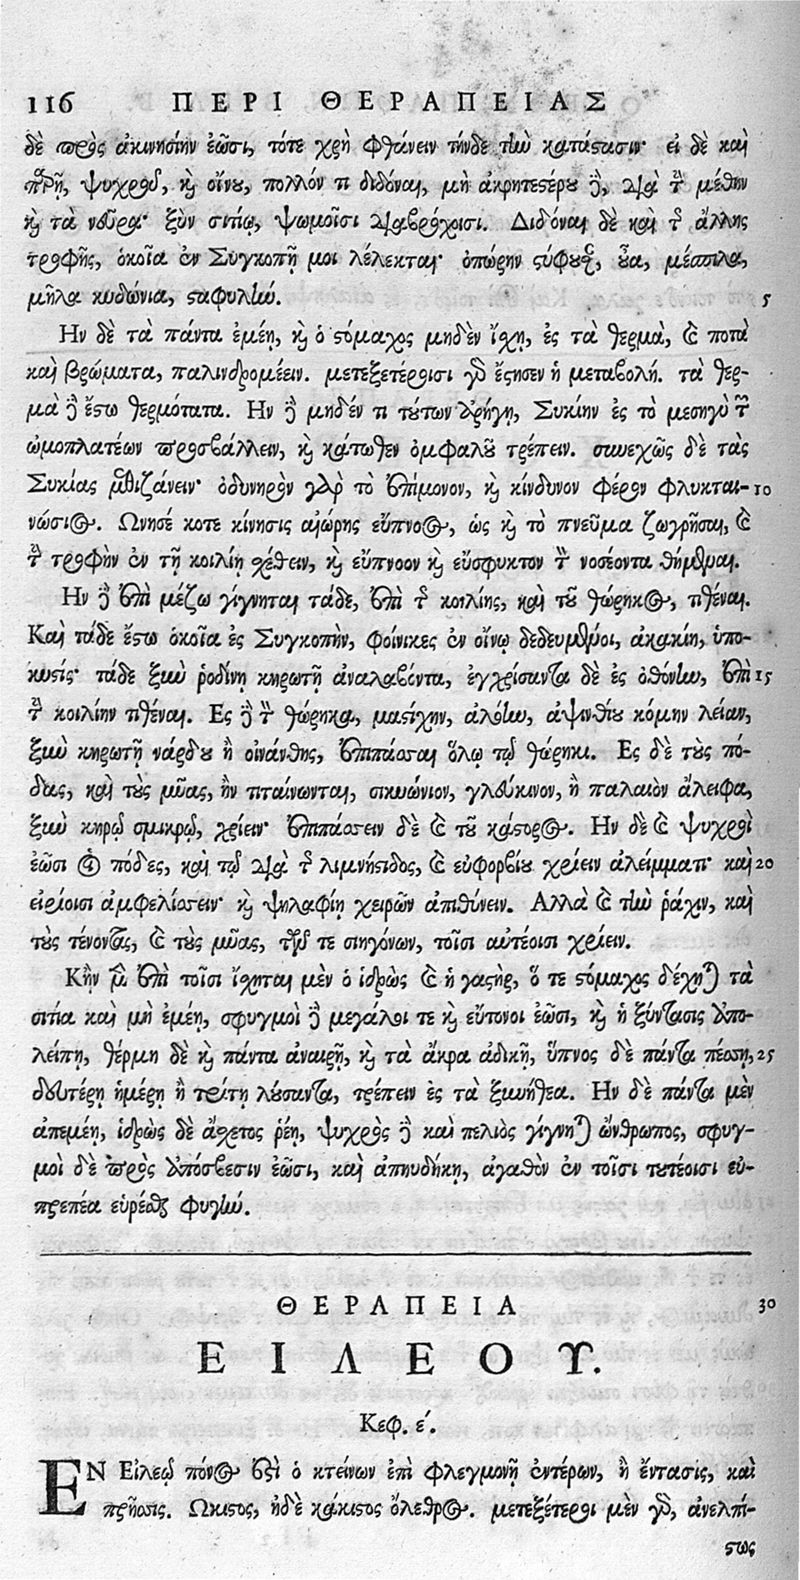 116 ΠΕΡΙ ΘΕΡΑΠΕΙΑΣ
δὲ πρὸς ἀκινησίην ἔωσι, τότε χρὴ φθάνειν τήνδε τὴν κατάστασιν· εἰ δὲ καὶ
παρῇ, ψυχροῦ, καὶ οἴνου, πολλόν τι διδόναι, μὴ ἀκρητεστέρου δὲ, διὰ τὴν μέθην
καὶ τὰ νεῦρα· ξὺν σιτίῳ, ψωμοῖσι διαβρόχοισι. Διδόναι δὲ καὶ τῆς ἄλλης
τροφῆς, ὁκοῖα ἐν Συγκοπῇ μοι λέλεκται· ὀπώρην στύφουσαν, οὖα, μέσπιλα,
μῆλα κυδώνια, σταφυλήν. 5
Ην δὲ τὰ πάντα ἐμέῃ, καὶ ὁ στόμαχος μηδὲν ἴσχῃ, ἐς τὰ θερμὰ, καὶ ποτὰ
καὶ βρώματα, παλινδρομέειν. μετεξετέροισι γὰρ ἔστησεν ἡ μεταβολή. τὰ θερ-
μὰ δὲ ἔστω θερμότατα. Ην δὲ μηδέν τι τούτων ἀρήγῃ, Συκίην ἐς τὸ μεσηγὺ τῶν
ὠμοπλατέων προσβάλλειν, καὶ κάτωθεν ὀμφαλοῦ τρέπειν. συνεχῶς δὲ τὰς
Συκίας μεθιζάνειν· ὀδυνηρὸν γὰρ τὸ ἐπίμονον, καὶ κίνδυνον φέρον φλυκται- 10
νώσιος. Ωνησέ κοτε κίνησις αἰώρης εὔπνοος, ὡς καὶ τὸ πνεῦμα ζωγρῆσαι, καὶ
τὴν τροφὴν ἐν τῇ κοιλίῃ σχέθειν, καὶ εὔπνοον καὶ εὔσφυκτον τὸν νοσέοντα θήμεναι.
Ην δὲ ἐπὶ μέζω γίγνηται τάδε, ἐπὶ τῆς κοιλίης, καὶ τοῦ θώρηκος, τιθέναι.
Καὶ τάδε ἔστω ὁκοῖα ἐς Συγκοπὴν, φοίνικες ἐν οἴνῳ δεδευμένοι, ἀκακίη, ὑπο-
κυστίς· τάδε ξὺν ῥοδίνῃ κηρωτῇ ἀναλαβόντα, ἐγχρίσαντα δὲ ἐς ὀθόνην, ἐπὶ 15
τὴν κοιλίην τιθέναι. Ες δὲ τὸν θώρηκα, μαστίχην, ἀλόην, ἀψινθίου κόμην λείαν,
ξὺν κηρωτῇ νάρδου ἢ οἰνάνθης, ἐπίπασται ὅλῳ τῷ θώρηκι. Ες δὲ τοὺς πό-
δας, καὶ τοὺς μῦας, ἢν τιταίνωνται, σικυώνιον, γλεύκινον, ἢ παλαιὸν ἄλειφα,
ξὺν κηρῷ σμικρῷ, χρίειν· ἐπιπάσσειν δὲ καὶ τοῦ κάστορος. Ην δὲ καὶ ψυχροὶ
ἔωσι οἱ πόδες, καὶ τῷ διὰ τῆς λιμνήστιδος, καὶ εὐφορβίου χρίειν ἀλείμματι· καὶ 20
εἰρίοισι ἀμφελίσσειν· καὶ ψηλαφίῃ χειρῶν ἀπιθύνειν. Αλλὰ καὶ τὴν ῥάχιν, καὶ
τοὺς τένοντας, καὶ τοὺς μῦας, τῶν τε σιηγόνων, τοῖσι αὐτέοισι χρίειν.
Κἢν μὲν ἐπὶ τοῖσι ἴσχηται μὲν ὁ ἱδρὼς καὶ ἡ γαστὴρ, ὅ τε στόμαχος δέχηται τὰ
σιτία καὶ μὴ ἐμέῃ, σφυγμοὶ δὲ μεγάλοι τε καὶ εὔτονοι ἔωσι, καὶ ἡ ξύντασις ἀπο-
λείπῃ, θέρμη δὲ καὶ πάντα ἀναιρῇ, καὶ τὰ ἄκρα ἀδικῇ, ὕπνος δὲ πάντα πέσσῃ, 25
δευτέρῃ ἡμέρῃ ἢ τρίτῃ λούσαντα, τρέπειν ἐς τὰ ξυνήθεα. Ην δὲ πάντα μὲν
ἀπεμέῃ, ἱδρὼς δὲ ἄσχετος ῥέῃ, ψυχρὸς δὲ καὶ πελιὸς γίγνηται ὥνθρωπος, σφυγ-
μοὶ δὲ πρὸς ἀπόσβεσιν ἔωσι, καὶ ἀπηυδήκῃ, ἀγαθὸν ἐν τοῖσι τουτέοισι εὐ-
πρεπέα εὑρέσθαι φυγήν.
ΘΕΡΑΠΕΙΑ 30
ΕΙΛΕΟΥ.
Κεφ. ε΄.
ΕΝ Εἰλεῷ πόνος ἐστὶ ὁ κτείνων ἐπὶ φλεγμονῇ ἐντέρων, ἢ ἔντασις, καὶ
πρῆσις. Ωκιστος, ἠδὲ κάκιστος ὄλεθρος. μετεξέτεροι μὲν γὰρ, ἀνελπί-
στως